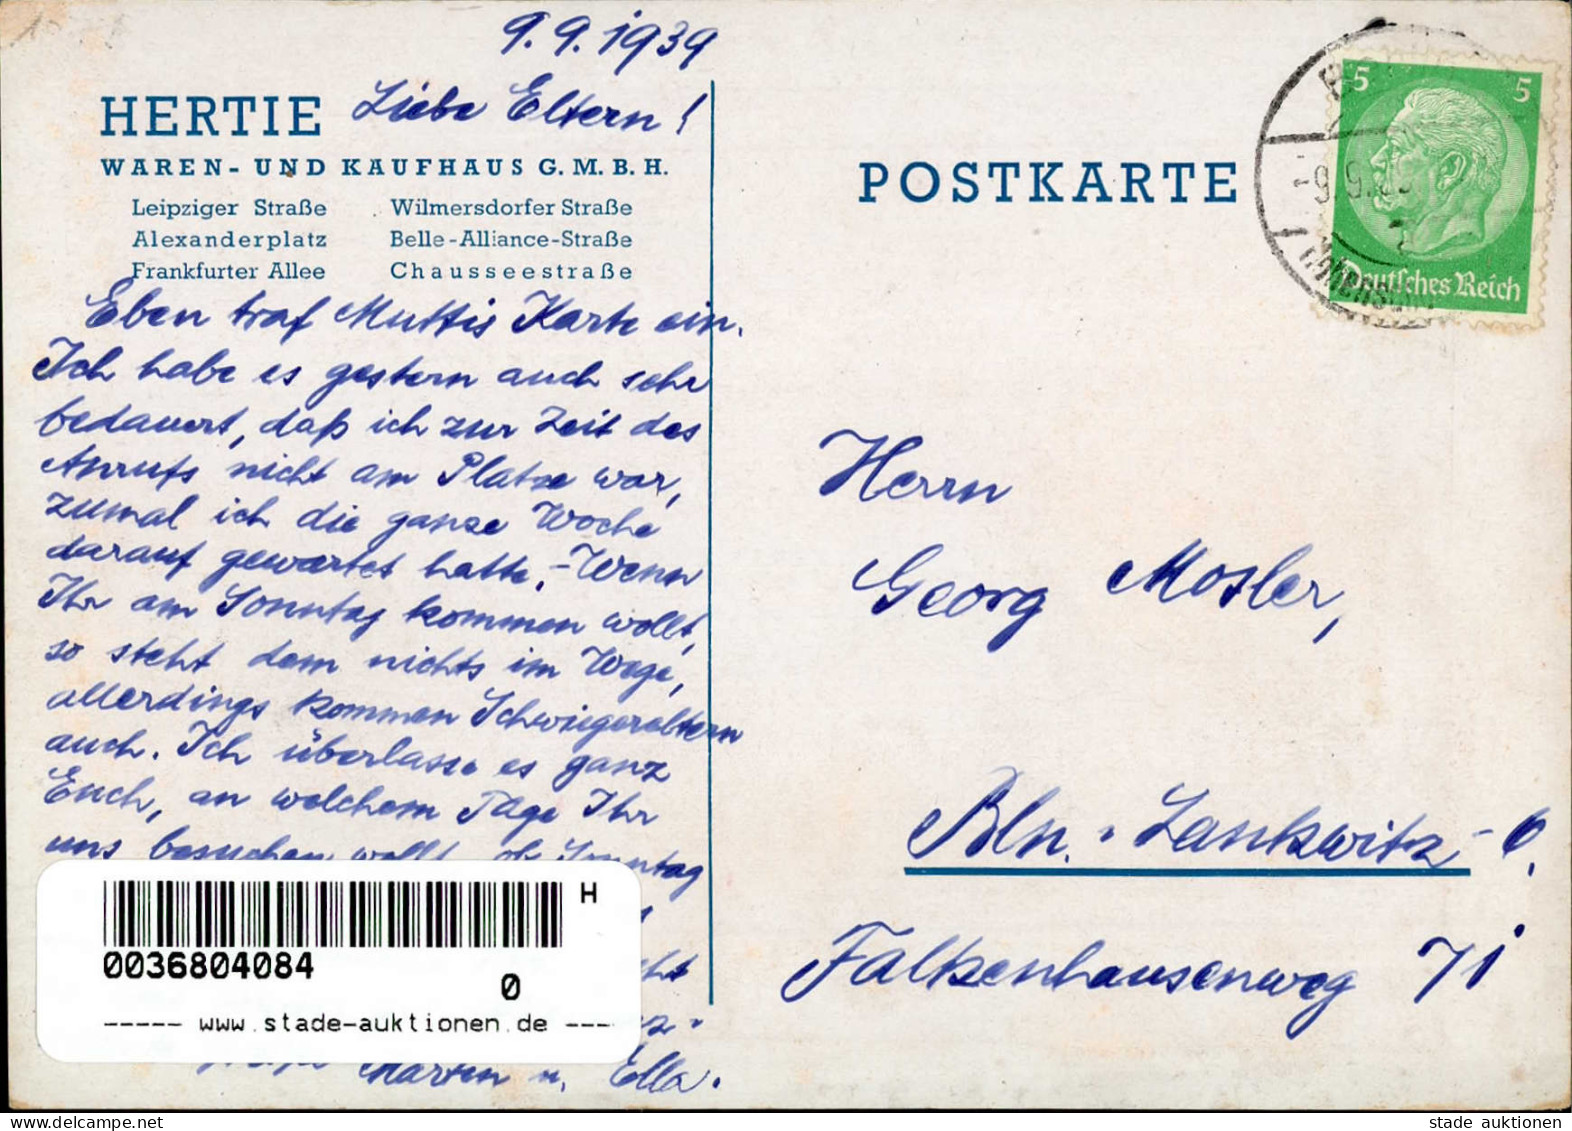 9.9.1939
HERTIE Liebe Eltern!
WAREN- UND KAUFHAUS G.M.B.H.
Leipziger Straße Wilmersdorfer Straße
Alexanderplatz Belle-Alliance-Straße
Frankfurter Allee Chausseestraße
Eben traf Muttis Karte ein.
Ich habe es gestern auch sehr
bedauert, daß ich zur Zeit des
Anrufs nicht am Platze war,
zumal ich die ganze Woche
darauf gewartet hatte. - Wenn
Ihr am Sonntag kommen wollt,
so steht dem nichts im Wege,
allerdings kommen Schwiegereltern
auch. Ich überlasse es ganz
Euch, an welchem Tage Ihr
uns besuchen wollt, ob Sonntag
Martin u. Ella.
H
0036804084
0
----- www.stade-auktionen.de ---
POSTKARTE
5 5
Deutsches Reich
-9.9.
Herrn
Georg Mosler,
Bln.-Lankwitz-O,
Falkenhausenweg 71
stade auktionen